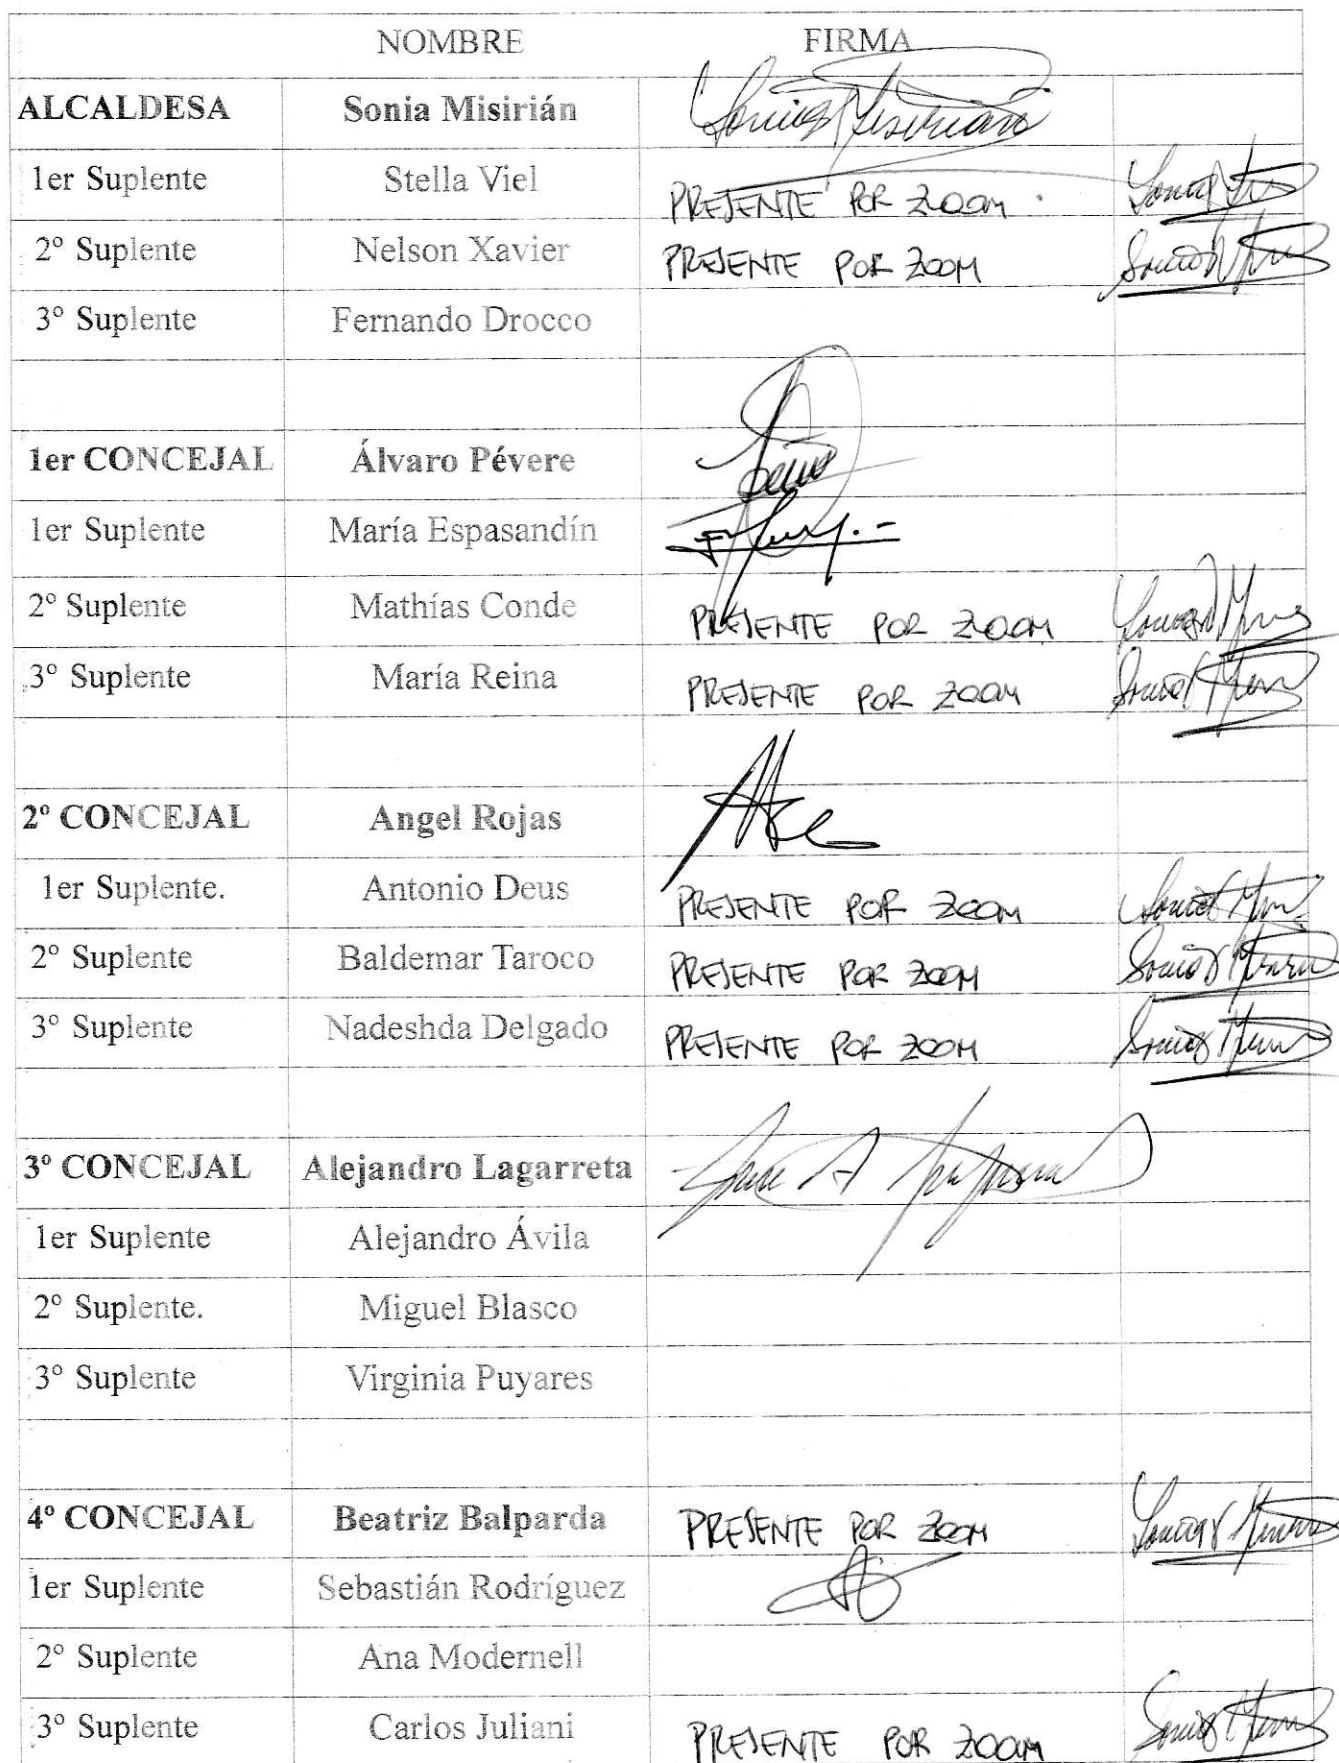 NOMBRE FIRMA
ALCALDESA Sonia Misirián Sonia Misirian
1er Suplente Stella Viel PRESENTE POR ZOOM .
2º Suplente Nelson Xavier PRESENTE POR ZOOM
3º Suplente Fernando Drocco
1er CONCEJAL Álvaro Pévere
1er Suplente María Espasandín
2º Suplente Mathías Conde PRESENTE POR ZOOM
3º Suplente María Reina PRESENTE POR ZOOM
2º CONCEJAL Angel Rojas
1er Suplente. Antonio Deus PRESENTE POR ZOOM
2º Suplente Baldemar Taroco PRESENTE POR ZOOM
3º Suplente Nadeshda Delgado PRESENTE POR ZOOM
3º CONCEJAL Alejandro Lagarreta
1er Suplente Alejandro Ávila
2º Suplente. Miguel Blasco
3º Suplente Virginia Puyares
4º CONCEJAL Beatriz Balparda PRESENTE POR ZOOM
1er Suplente Sebastián Rodríguez
2º Suplente Ana Modernell
3º Suplente Carlos Juliani PRESENTE POR ZOOM